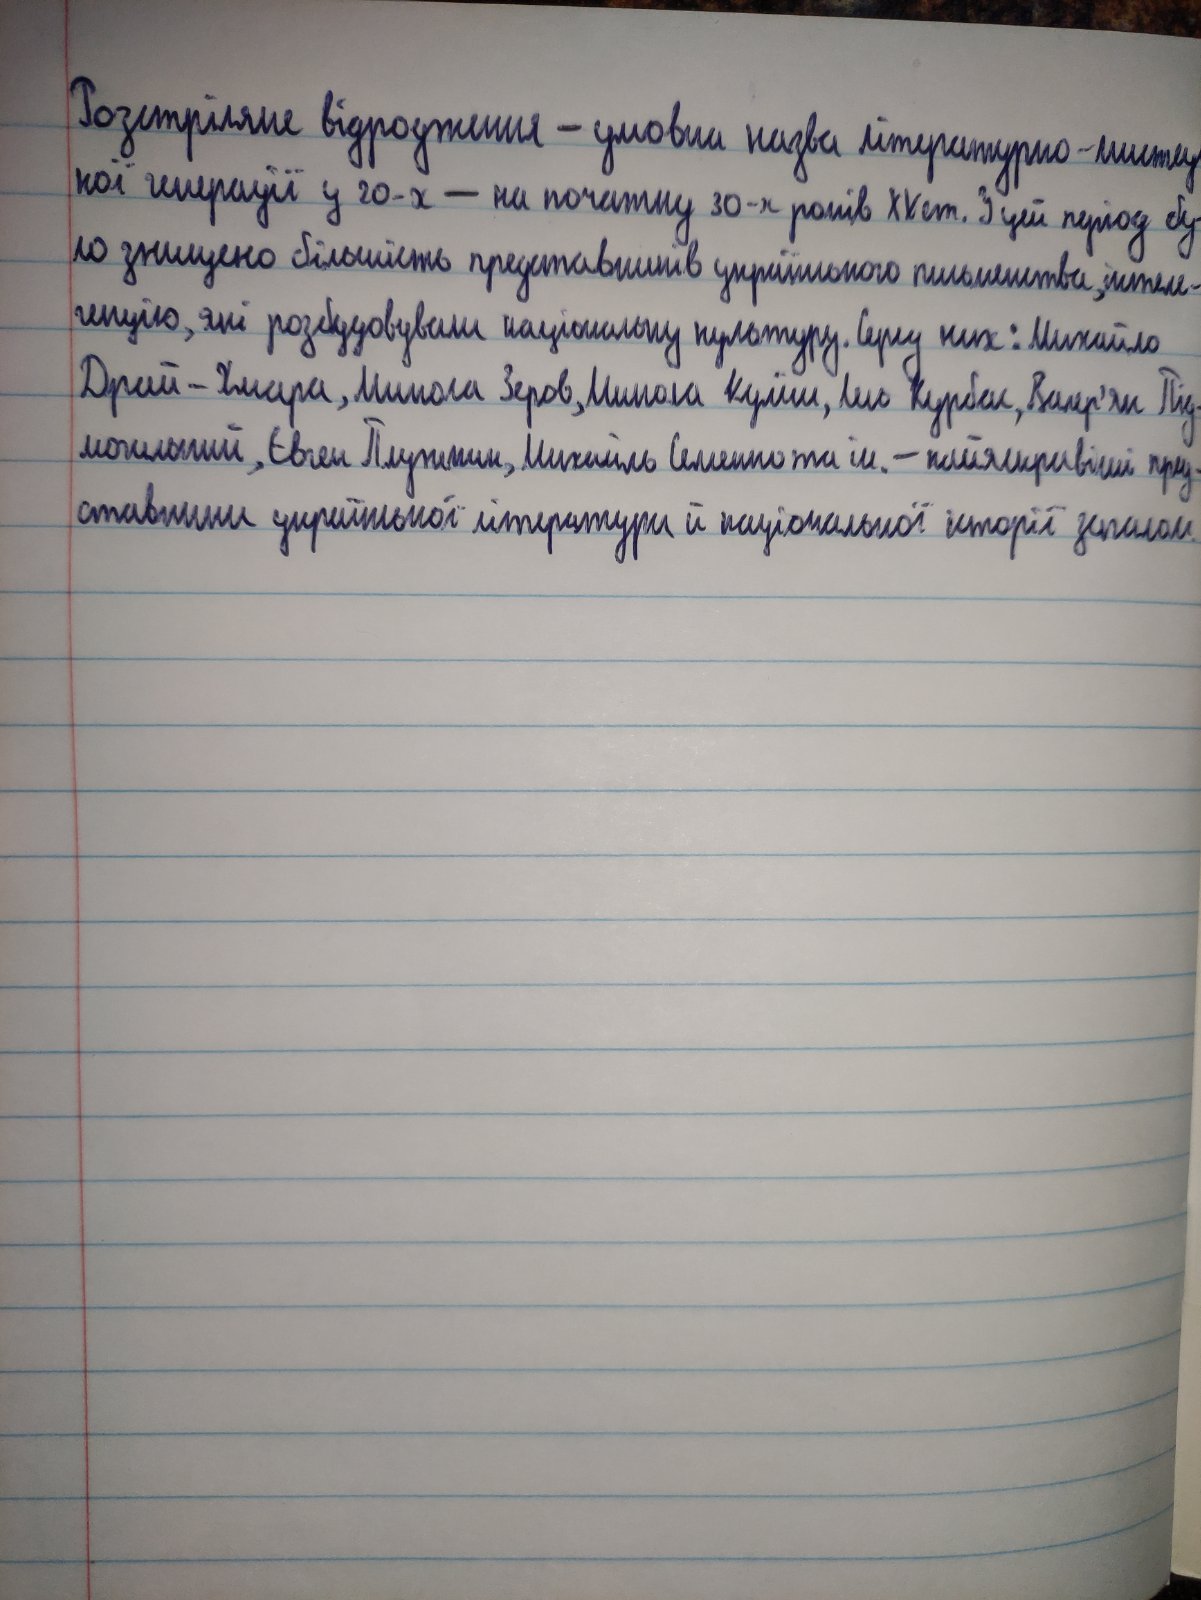 Розстріляне відродження – умовна назва літературно-мистец
кої генерації у 20-х — на початку 30-х років XXст. У цей період бу-
ло знищено більшість представників українського письменства, інтеле-
генцію, які розбудовували національну культуру. Серед них: Михайло
Драй-Хмара, Микола Зеров, Микола Куліш, Лесь Курбас, Валер'ян Під-
могильний, Євген Плужник, Михайль Семенко та ін. – найяскравіші пред-
ставники української літератури й національної історії загалом.